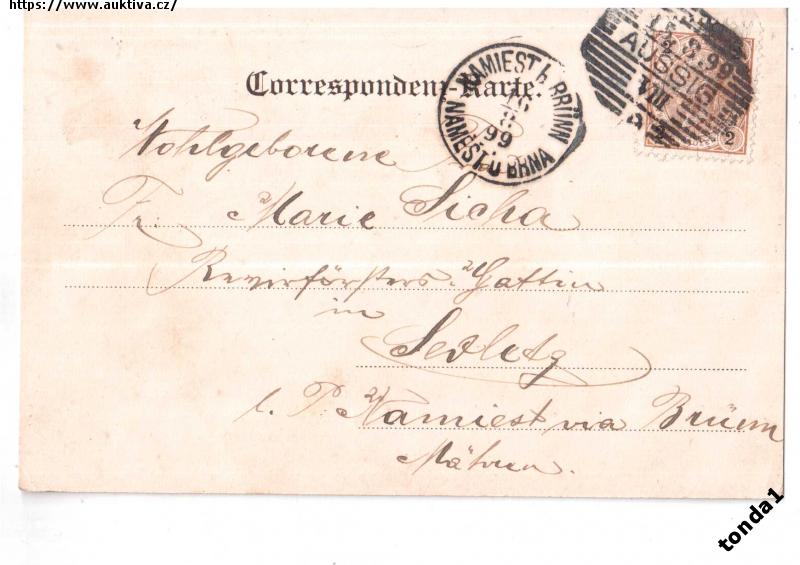 https://www.auktiva.cz/
Correspondenz-Karte.
NAMIEST b. BRÜNN
16
8
99
NÁMĚŠŤ U BRNA
8.99
AUSSIG
2
Wohlgeborene
Fr. Marie Sicha
Revirförsters-Gattin
in
Sedletz
l. P. Namiest via Brünn
Mähren.
tonda1